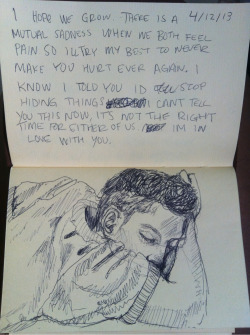 I HOPE WE GROW. THERE IS A 4/12/13
MUTUAL SADNESS WHEN WE BOTH FEEL
PAIN SO ILL TRY MY BEST TO NEVER
MAKE YOU HURT EVER AGAIN. I
KNOW I TOLD YOU ID STOP
HIDING THINGS I CANT TELL
YOU THIS NOW, IT'S NOT THE RIGHT
TIME FOR EITHER OF US IM IN
LOVE WITH YOU.